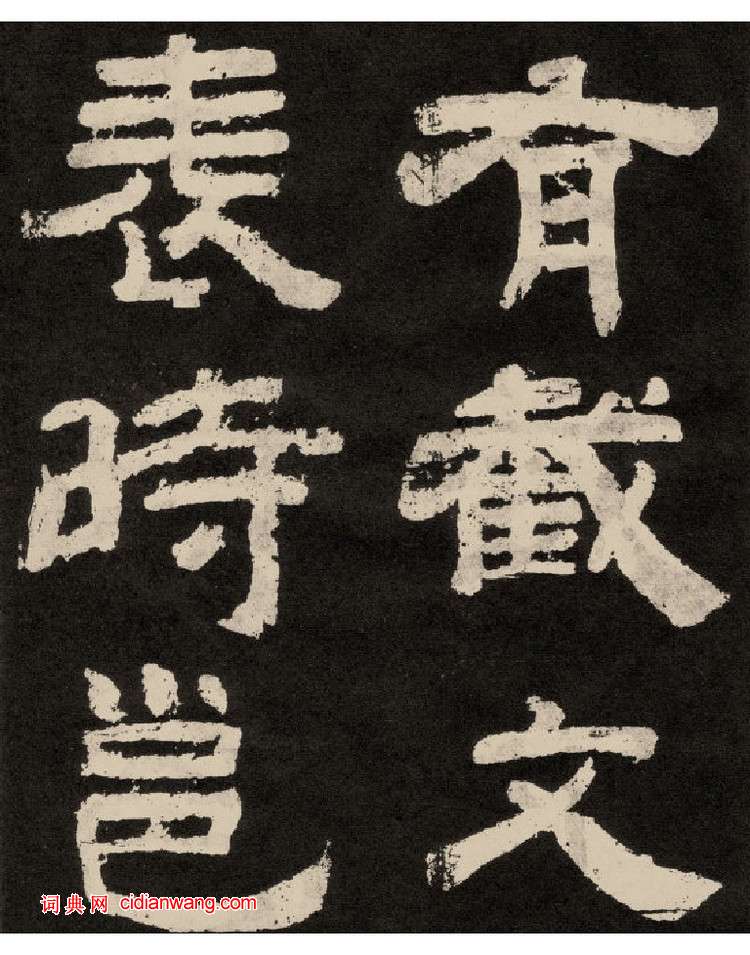 有截文
表時邕
词典网 cidianwang.com